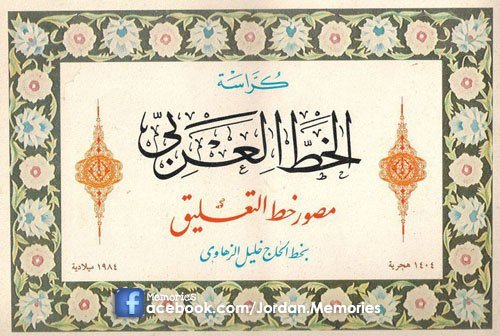 كُرَّاسَة
الخَطُّ العَرَبي
مصور خط التعليق
بخط الحاج خليل الزهاوي
١٩٨٤ ميلادية
١٤٠٤ هجرية
Memories
facebook.com/Jordan.Memories